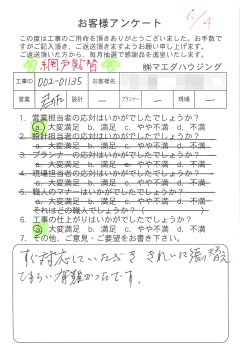 6/4
お客様アンケート
この度は工事のご用命を頂きありがとうございました。お手数で
すがご記入頂き、ご返送頂きますようお願い申し上げます。
ご返送頂いた方から、毎月抽選で感謝品を進呈いたします。
網戸張替
㈱マエダハウジング
工事ID 002-01135 お客様名
営業 設計 — プランナー — 現場 —
1. 営業担当者の応対はいかがでしたでしょうか?
a. 大変満足 b. 満足 c. やや不満 d. 不満
2. 設計担当者の応対はいかがでしたでしょうか?
a. 大変満足 b. 満足 c. やや不満 d. 不満
3. プランナーの応対はいかがでしたでしょうか?
a. 大変満足 b. 満足 c. やや不満 d. 不満
4. 現場担当者の応対はいかがでしたでしょうか?
a. 大変満足 b. 満足 c. やや不満 d. 不満
5. 職人のマナーはいかがでしたでしょうか?
a. 大変満足 b. 満足 c. やや不満 d. 不満
それはどの職人でしょうか?( )
6. 工事の仕上がりはいかがでしたでしょうか?
a. 大変満足 b. 満足 c. やや不満 d. 不満
7. その他、ご意見・ご要望をお書き下さい。
すぐ対応していただき きれいに張り替え
てもらい 有難かったです。